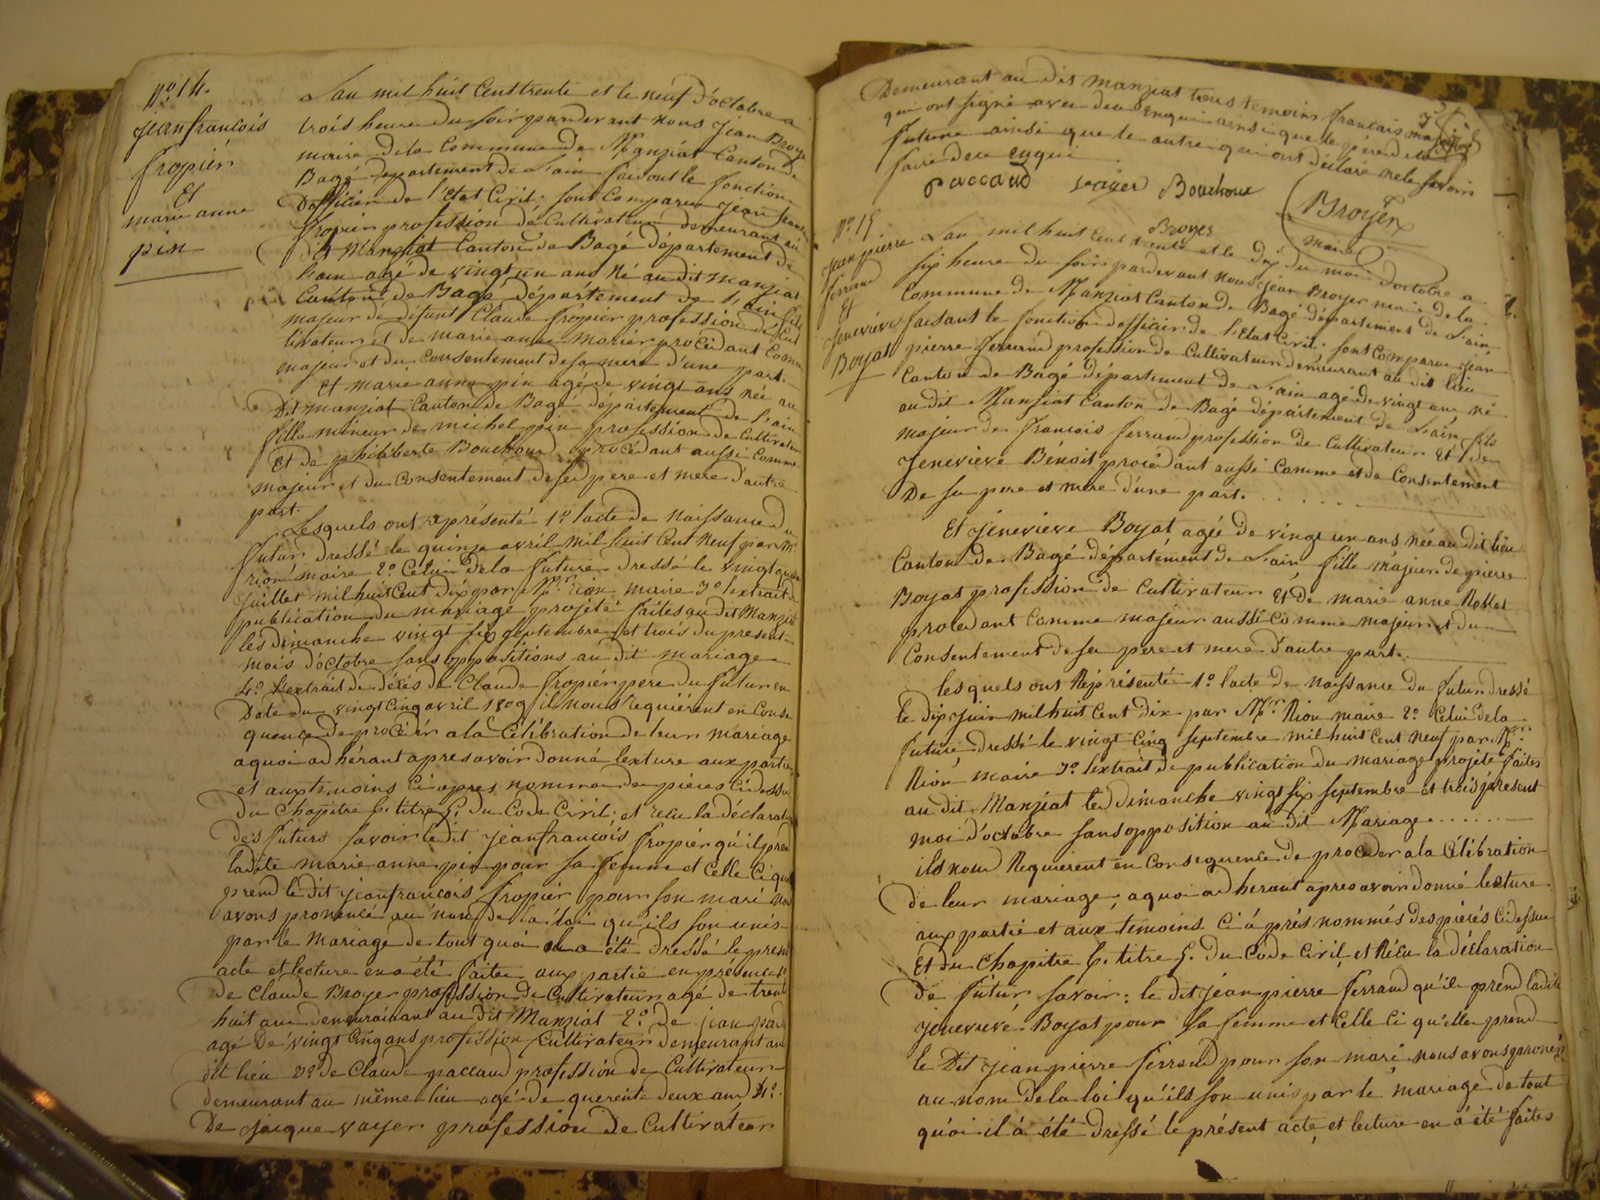 No 14.
jean francois
fropier
Et
marie anne
pin
L'an mil huit Cent trente et le neuf d'octobre a
trois heure du soir pardevant nous Jean Broyer
maire dela Commune de Manziat Canton de
Bagé département de L'ain faisont le fonction
D'officier de l'Etat Civil; sont Comparu jean francois
fropier profession de Cultivateur demeurant au
dit Manziat Canton de Bagé département de
Lain agé de vingt un ans né au dit manziat
Canton de Bagé département de L'ain fils
majeur de défunt Claude fropier profession de Cul
tivateur et de marie anne procédant Comme
majeur et du Consentement de sa mere d'une part.
Et marie anne pin agé de vingt ans née au
Dit manziat Canton de Bagé département de L'ain
fille mineur de michel pin profession de Cultivateur
Et de philiberte Bouchoux procédant aussi Comme
majeur et du Consentement de ses pere et mere d'autre
part.
Lesquels ont représenté 1o l'acte de Naissance du
futur dressé le quinze avril mil huit Cent Neuf par Mr
rion maire 2o Celui dela future dressé le vingt quatre
juillet mil huit Cent dix par Mr rion maire 3o l'extrait de
publication du mariage projété faites au dit Manziat
les dimanche vingt six septembre et trois du present
mois d'octobre sans oppositions au dit mariage
4o L'extrait de décés de Claude fropier pere du futur en
Date du vingt Cinq avril 1809 il nous requiérent en Conse
quence de proceder a la Célébration de leur mariage
a quoi adhérant apres avoir donné lecture aux parties
et aux temoins Ci apres nommé des piéces Ci dessus
du Chapitre 6. titre 5. du Code Civil; et recu la déclaration
Des futurs savoir le dit jean francois fropier qu'il prend
ladite marie anne pin pour sa femme et Celle Ci qu'elle
prend le dit jean francois fropier pour son mari nous
avons prononcé au nom de la loi qu'ils son unis
par le Mariage de tout quoi il a été dressé le present
acte et lecture en a été faites aux partie en présence 1o
De Claude Broyer profession de Cultivateur agé de trente
huit ans demeurant au dit Manziat 2o De jean
agé De vingt Cinq ans profession Cultivateur demeurant au
dit lieu 3o de Claude paccaud profession de Cultivateur
demeurant au même lieu agé de querente deux ans 4o.
De jaique vayer profession De Cultivateur
Demeurant au dit Manziat tous temoin francais majeur
qui ont signé avec deux Enqui ainsi que le pere de la
future ainsi que le autre qui ont déclaré ne le savoir
faire de ce enqui
paccaud vayer Bouchoux
Broyer Broyer
maire
No 15.
jean pierre
ferrand
Et
jeneviéve
Boyat
L'an mil huit Cent trente et le dix du mois d'octobre a
six heure du soir pardevant nous jean Broyer maire de la
Commune de Manziat Canton de Bagé département de L'ain
faisant le fonction d'officier de l'Etat Civil. sont Comparu jean
pierre ferrand profession de Cultivateur demeurant au dit lieu
Canton de Bagé département de L'ain agé de vingt ans né
au dit Manziat Canton de Bagé département de L'ain fils
majeur de francois ferrand profession de Cultivateur Et de
Jeneviéve Bénoit procédant aussi Comme et de Consentement
De sa pere et mere d'une part.
Et jéneviéve Boyat agée de vingt un ans née au dit lieu
Canton de Bagé département de L'ain fille majeur de pierre
Boyat profession de Cultivateur Et de marie anne
procedant Comme majeur aussi Comme majeur et du
Consentement de ses pere et mere d'autre part.
lesquels ont Réprésenté 1o l'acte de Naissance du futur dressé
le dix juin mil huit Cent dix par Mr. Rion maire 2o Celui de la
future dressé le vingt Cinq septembre mil huit Cent Neuf par Mr.
Rion maire 3o lextrait de publication du mariage projeté faites
au dit Manziat le dimanche vingt six septembre et trois present
moi d'octobre sans opposition au dit Mariage.......
ils nous Requierent en Consequence de proceder a la Célébration
de leur mariage, a quoi adherant apres avoir donné lecture
aux partie et aux témoins Ci après nommés des piécés Ci dessus
Et du Chapitre 6. titre 5. du Code Civil, et Récu la déclaration
De futur savoir: le dit jean pierre ferrand qu'il prend ladite
jeneviévé Boyat pour sa femme et Celle Ci qu'elle prend
le Dit jean pierre ferrand pour son mari nous avons prononcé
au nom de la loi qu'ils son unis par le mariage de tout
quoi il a été dressé le présent acte et lecture en a été faites